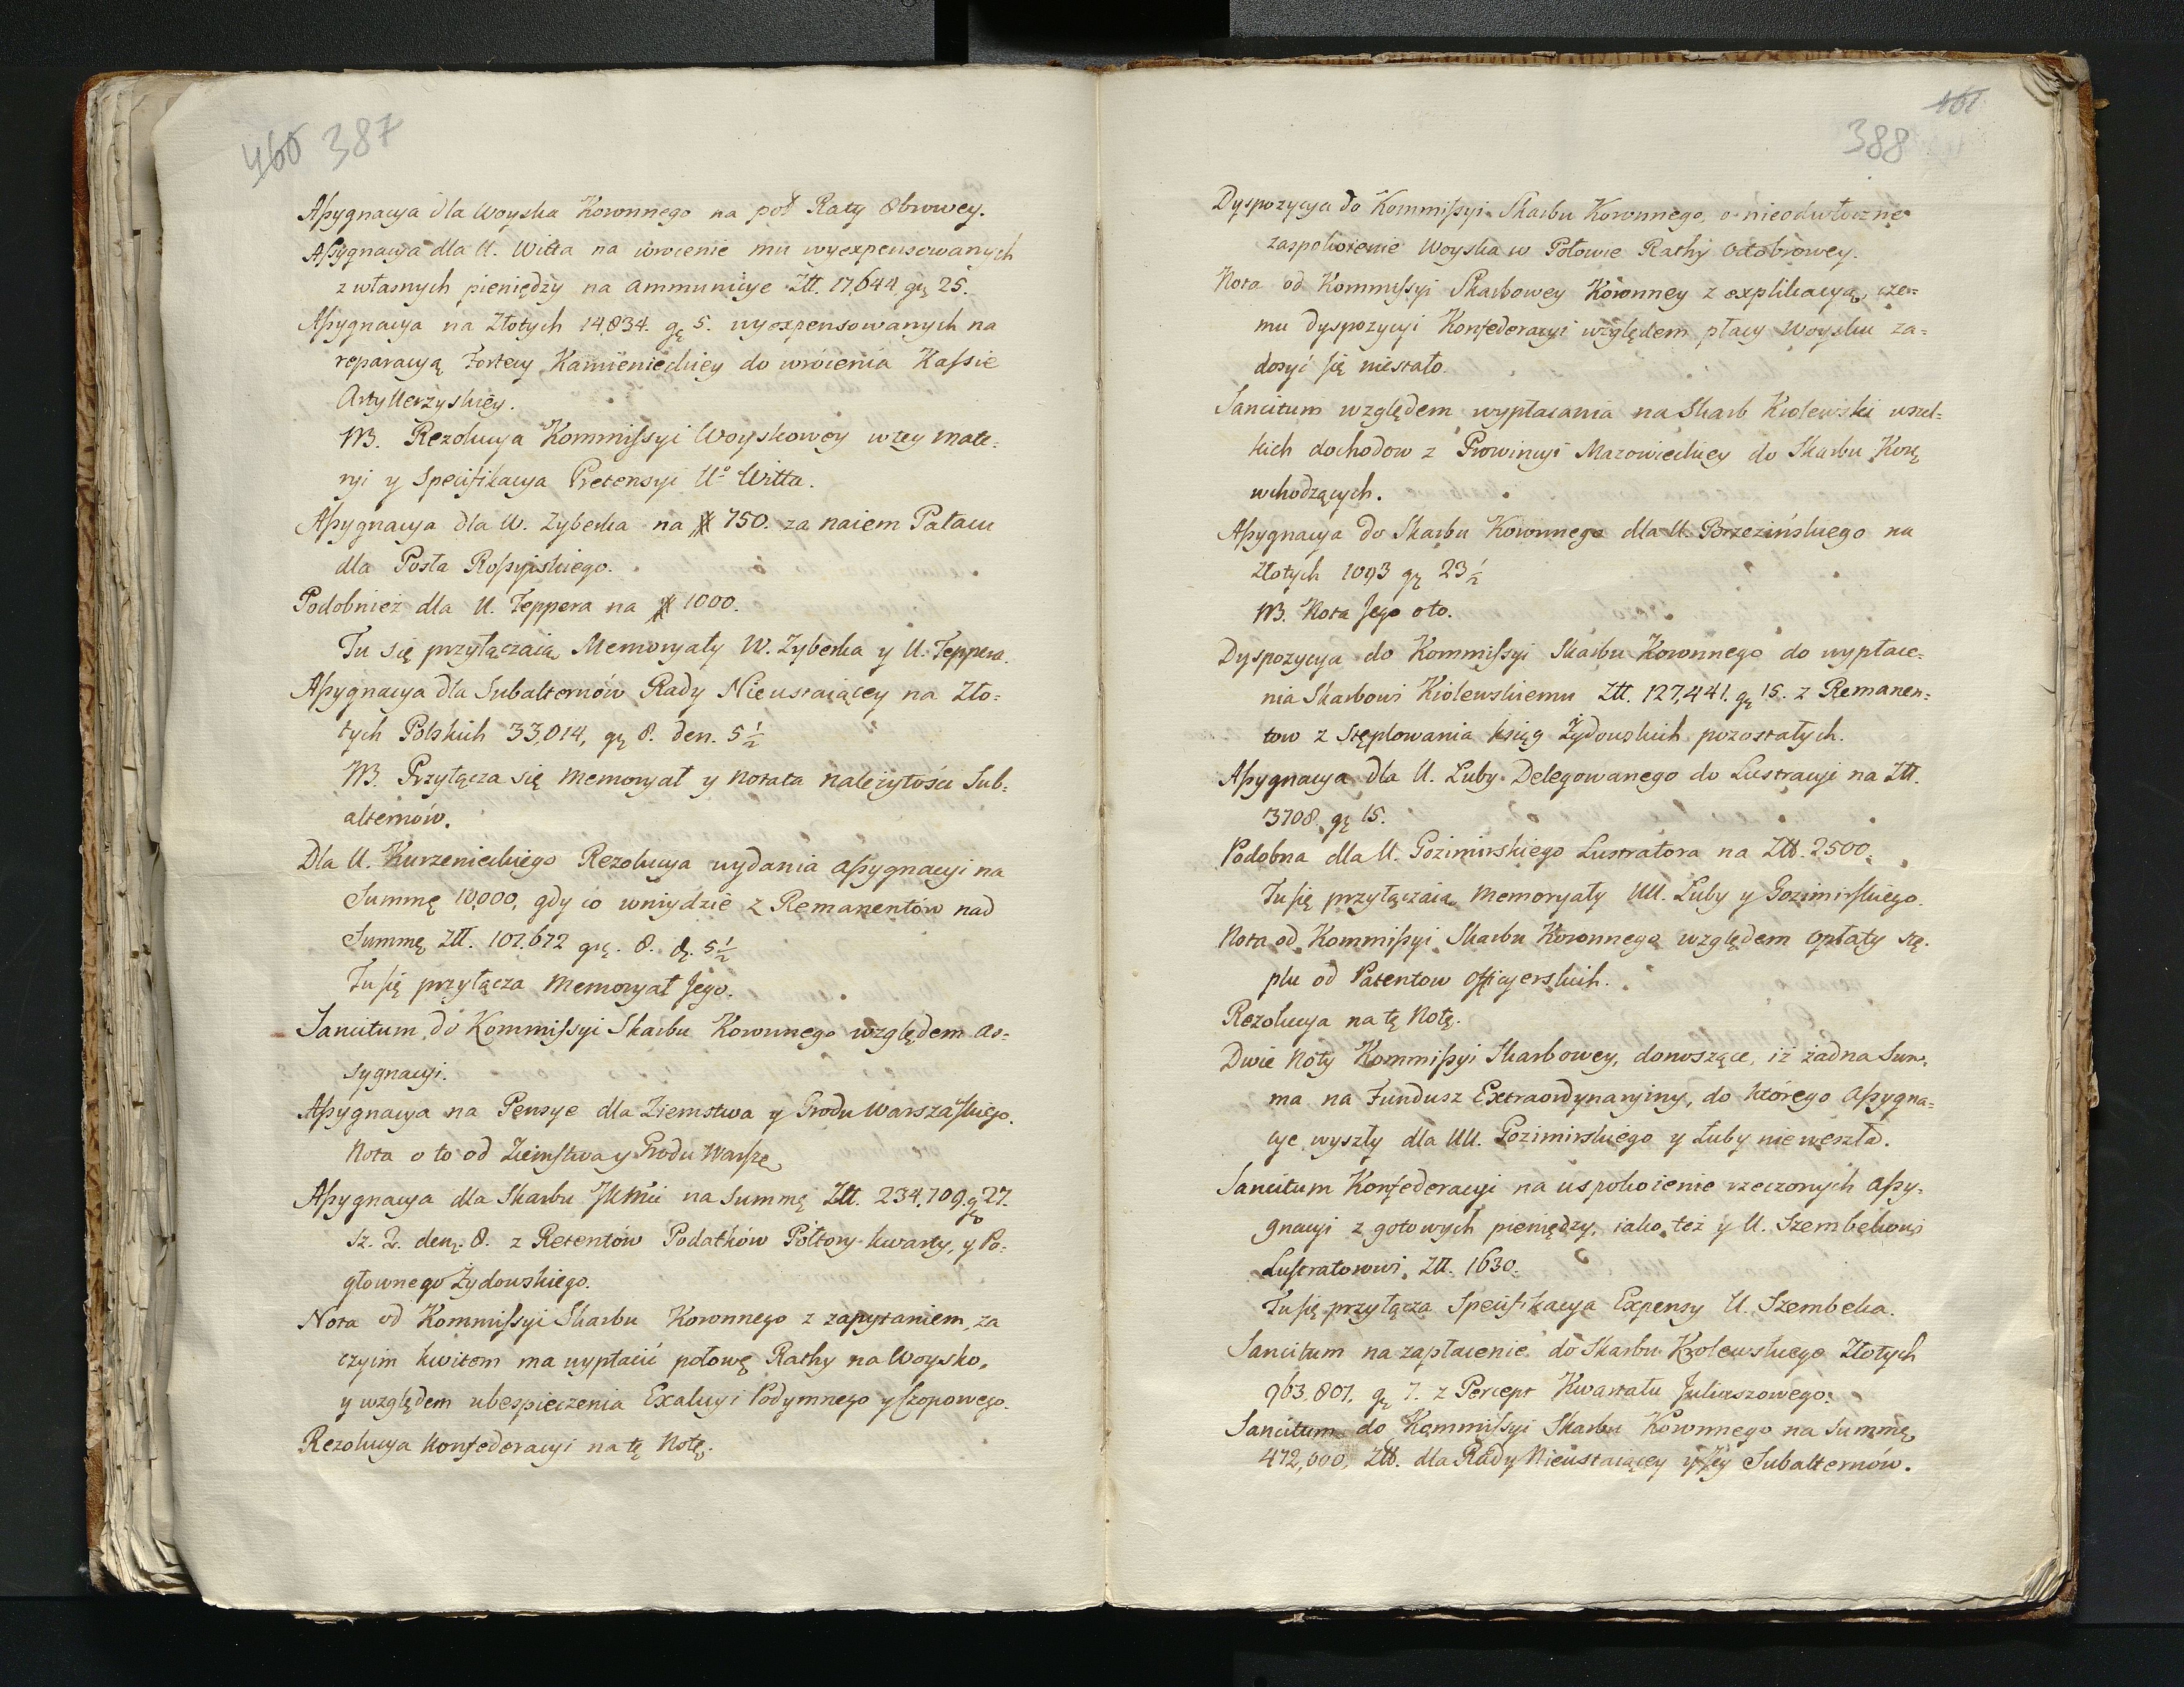 460 387
Aſsygnacya dla Woyska Koronnego na poł Raty 8browey.
Aſsygnacya dla U. Witta na wrocenie mu wyexpensowanych
z własnych pieniędzy na Ammunicye Ztt. 17,644, gę 25.
Aſsygnacya na Złotych 14834. gę 5. wyexpensowanych na
reparacyą Fortecy Kamienieckiey do wrócenia Kaſsie
Artylleryzyskiey.
NB. Rezolucya Kommiſsyi Woyskowey w tey mate=
ryi y Specifikacya Pretensyi Uº Witta.
Aſsygnacya dla W. Zyberka na # 750. za naiem Pałacu
dla Posła Roſsyiskiego.
Podobnież dla U. Teppera na # 1000.
Tu się przyłączaią Memoryały W. Zyberka y U. Teppera.
Aſsygnacya dla Subalternów Rady Nieustaiącey na Zło=
tych Polskich 33,014, gę 8. den. 5 1/2
NB. Przyłącza się Memoryał y Notata należytości Sub=
alternów.
Dla U. Kurzenieckiego Rezolucya wydania Aſsygnacyi na
Summę 10,000, gdy co wniydzie z Remanentów nad
Summę Ztt. 107,672 grę. 8. d. 5 1/2
Tu ſię przyłącza Memoryał Jego.
Sancitum do Kommiſsyi Skarbu Koronnego względem As=
sygnacyi.
Aſsygnacya na Pensye dla Ziemstwa y Grodu Warszaſkiego.
Nota o to od Ziemſtwa y Grodu Warſzę
Aſsygnacya dla Skarbu JKMci na Summę Ztt. 234,709. gę 27.
Sz. 2. denę. 8. z Retentów Podatków Półtory kwarty, y Po=
głownego Żydowskiego.
Nota od Kommiſsyi Skarbu Koronnego z zapytaniem, za
czyim kwitem ma wypłacić połowę Rathy na Woysko,
y względem ubespieczenia Exakcyi Podymnego y ſzopowego.
Rezolucya Konfederacyi na tę Notę.
461
388
Dyspozycya do Kommiſsyi Skarbu Koronnego, o nieodwłoczne
zaspokoienie Woyska w Połowie Rathy Octobrowey.
Nota od Kommiſsyi Skarbowey Koronney z explikacyą, cze=
mu dyspozycyi Konfederacyi względem płacy Woysku za=
dosyć ſię niestało.
Sancitum względem wypłacania na Skarb Krolewski wszel=
kich dochodow z Prowincyi Mazowieckiey do Skarbu Korę
wchodzących.
Aſsygnacya do Skarbu Koronnego dla U. Brzezińskiego na
Złotych 1093 gę 23 1/2
NB. Nota Jego oto.
Dyspozycya do Kommiſsyi Skarbu Koronnego do wypłace=
nia Skarbowi Królewskiemu Ztt. 127,441. gę 15. z Remanen=
tow z Stęplowania ksiąg Żydowskich pozostałych.
Aſsygnacya dla U. Luby Delegowanego do Lustracyi na Ztt.
3708. gę 15.
Podobna dla U. Gozimirskiego Lustratora na Ztt. 2500.
Tu ſię przyłączaią Memoryały UU. Luby y Gozimirſkiego.
Nota od Kommiſsyi Skarbu Koronnego względem opłaty stę=
plu od Patentow Officyerskich.
Rezolucya na tę Notę.
Dwie Noty Kommiſsyi Skarbowey, donoszące, iż żadna Sum=
ma na Fundusz Extraordynaryiny, do którego Aſsygna=
cye wyszły dla UU. Gozimirskiego y Łuby nie weszła.
Sancitum Konfederacyi na uspokoienie rzeczonych Aſsy=
gnacyi z gotowych pieniędzy, iako też y U. Szembekowi
Luſtratorowi, Ztt. 1630.
Tu ſię przyłącza Specifikacya Expensy U. Szembeka.
Sancitum na zapłacenie do Skarbu Krolewskiego Złotych
963,807. gę 7. z Percept Kwartału Juliuszowego.
Sancitum do Kommiſsyi Skarbu Koronnego na Summę
472,000, Ztt. dla Rady Nieustaiącey y Jey Subalternów.